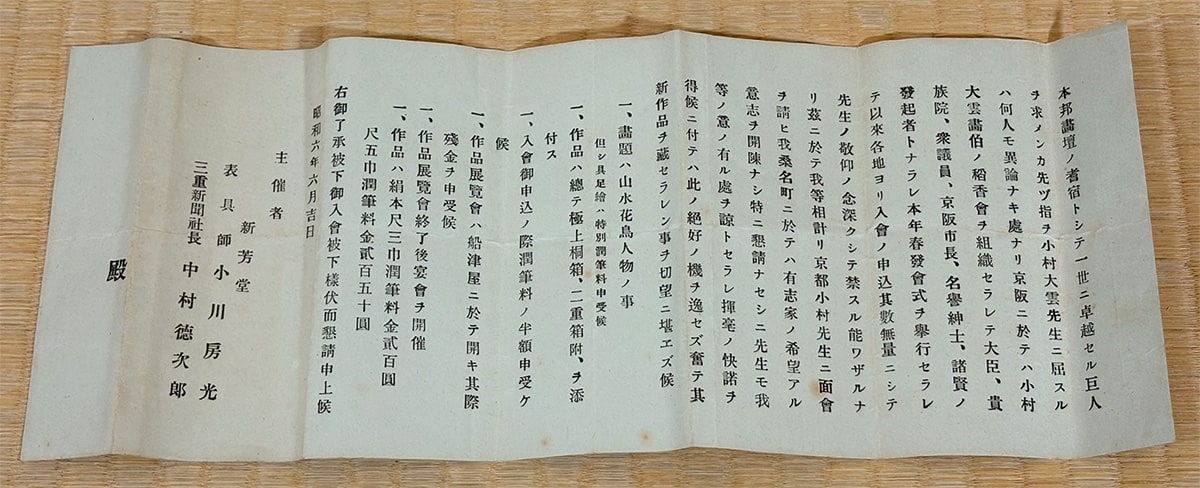 本邦畵壇ノ耆宿トシテ一世ニ卓越セル巨人
ヲ求メンカ先ヅ指ヲ小村大雲先生ニ屈スル
ハ何人モ異論ナキ處ナリ京阪ニ於テハ小村
大雲畵伯ノ稻香會ヲ組織セラレテ大臣、貴
族院、衆議員、京阪市長、名譽紳士、諸賢ノ
發起者トナラレ本年春發會式ヲ擧行セラレ
テ以來各地ヨリ入會ノ申込其數無量ニシテ
先生ノ敬仰ノ念深クシテ禁スル能ワザルナ
リ茲ニ於テ我等相計リ京都小村先生ニ面會
ヲ請ヒ我桑名町ニ於テハ有志家ノ希望アル
意志ヲ開陳ナシ特ニ懇請ナセシニ先生モ我
等ノ意ノ有ル處ヲ諒トセラレ揮毫ノ快諾ヲ
得候ニ付テハ此ノ絕好ノ機ヲ逸セズ奮テ其
新作品ヲ藏セラレン事ヲ切望ニ堪エズ候
一、畵題ハ山水花鳥人物ノ事
但シ具足繪ハ特別潤筆料申受候
一、作品ハ總テ極上桐箱、二重箱附、ヲ添
付ス
一、入會御申込ノ際潤筆料ノ半額申受ケ
候
一、作品展覽會ハ船津屋ニ於テ開キ其際
殘金ヲ申受候
一、作品展覽會終了後宴會ヲ開催
一、作品ハ絹本尺三巾潤筆料金貳百圓
尺五巾潤筆料金貳百五十圓
右御了承被下御入會被下樣伏而懇請申上候
昭和六年六月吉日
主催者
新芳堂
表具師 小川房光
三重新聞社長 中村徳次郎
殿